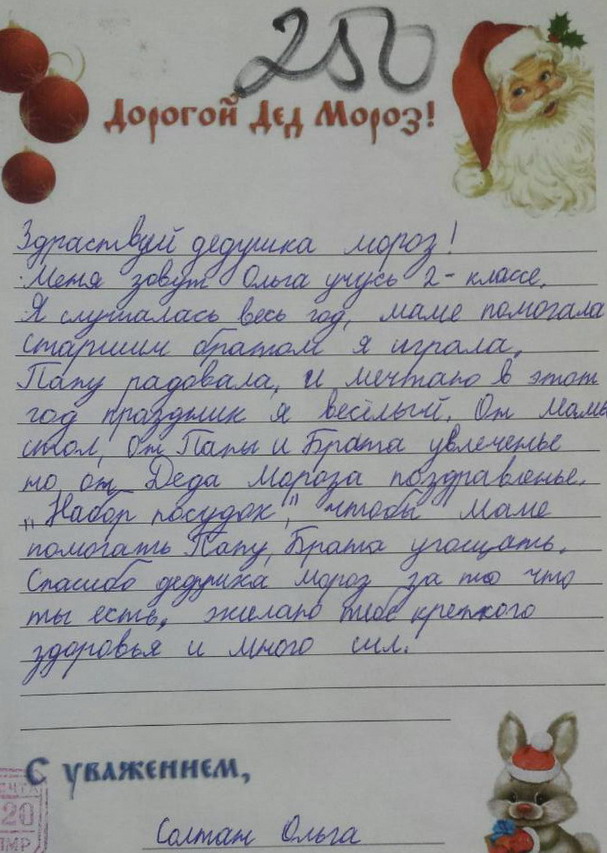 250
Дорогой Дед Мороз!
Здраствуй дедушка мороз!
Меня зовут Ольга учусь 2-классе.
Я слушалась весь год, маме помогала
старшим братом я играла.
Папу радовала, и мечтаю в этот
год праздник я весёлый. От мамы
стол, от Папы и Брата увлеченье
но от Деда Мороза поздравленье.
"Набор посудок," чтобы маме
помогать Папу, Брата угощать.
Спасибо дедушка мороз за то что
ты есть, желаю тебе крепкого
здоровья и много сил.
С уважением,
20
ПМР
Солтан Ольга